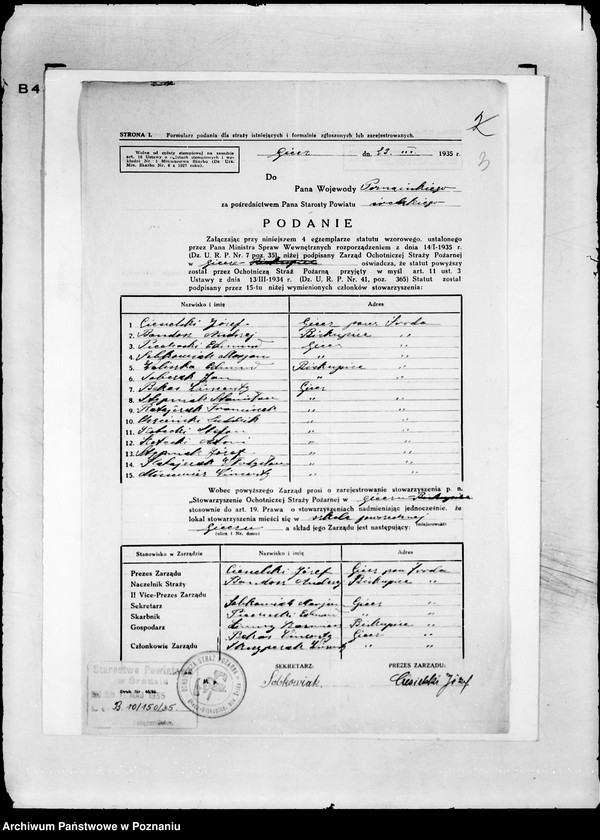 B4
2
3
STRONA I. Formularz podania dla straży istniejących i formalnie zgłoszonych lub zarejestrowanych.
Wolne od opłaty stemplowej na zasadzie
art. Ustawy o opłatach stemplowych i
Nr. Ministerstwa Skarbu (Dz. Urz.
Min. Skarbu Nr. 1927 roku).
Giecz dn. 22. III. 1935 r.
Do
Pana Wojewody Poznańskiego
za pośrednictwem Pana Starosty Powiatu średzkiego
PODANIE
Załączając przy niniejszem 4 egzemplarze statutu wzorowego, ustalonego
przez Pana Ministra Spraw Wewnętrznych rozporządzeniem z dnia 14/I-1935 r.
(Dz. U. R. P. Nr. 7 poz. 35), niżej podpisany Zarząd Ochotniczej Straży Pożarnej
w Gieczu Biskupice oświadcza, że statut powyższy
został przez Ochotniczą Straż Pożarną przyjęty w myśl art. 11 ust. 3
Ustawy z dnia 13/III-1934 r. (Dz. U. R. P. Nr. 41, poz. 365) Statut został
podpisany przez 15-tu niżej wymienionych członków stowarzyszenia:
Nazwisko i imię Adres
1. Ciesielski Józef Giecz pow. Środa
2. Andrzej Biskupice "
3. Giecz "
4. Sobkowiak Marjan " "
5. Biskupice "
6. Jan " "
7. Bekas Wincenty Giecz "
8. Stanisław " "
9. Ratajczak Franciszek " "
10. Ludwik " "
11. Stefan " "
12. " "
13. Józef " "
14. Ratajczak Władysław " "
15. Wincenty " "
Wobec powyższego Zarząd prosi o zarejestrowanie stowarzyszenia p. n.
„Stowarzyszenie Ochotniczej Straży Pożarnej w Gieczu Biskupice
stosownie do art. 19. Prawa o stowarzyszeniach nadmieniając jednocześnie, że
lokal stowarzyszenia mieści się w szkole powszechnej
(miejscowość)
Gieczu a skład jego Zarządu jest następujący:
(ulica i Nr. domu)
Stanowisko w Zarządzie Nazwisko i imię Adres
Prezes Zarządu Ciesielski Józef Giecz pow Środa
Naczelnik Straży Andrzej Biskupice "
II Vice-Prezes Zarządu
Sekretarz Sobkowiak Marjan Giecz "
Skarbnik " "
Gospodarz Kazimierz Biskupice "
Bekas Wincenty Giecz "
Członkowie Zarządu " "
SEKRETARZ: PREZES ZARZĄDU:
Sobkowiak Ciesielski Józef
Starostwo Powiatowe
w Środzie
1935
B. 10/150/35
M. p.
Archiwum Państwowe w Poznaniu